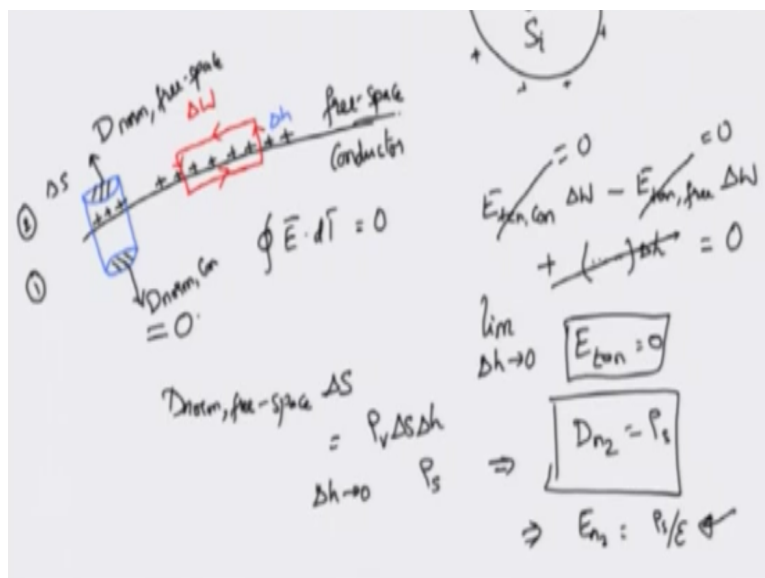 S₁
D norm, free-space
ΔW
Δh
free-space
Conductor
ΔS
②
①
+++
+ + + + + + + +
D norm, Con
= 0.
∮ Ē · dl̄ = 0
E tan, Con ΔW - E tan, free ΔW
= 0
= 0
+ (......) Δh = 0
lim
Δh→0
E tan = 0
D norm, free-space ΔS
= ρᵥ ΔS Δh
Δh→0 ρₛ
⇒ Dn₂ = ρₛ
⇒ En₂ : ρₛ/ε